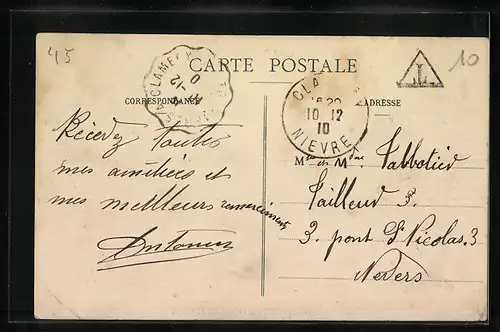 45
10
CARTE POSTALE
CORRESPONDANCE
ADRESSE
CLAMECY
12
T
CLA
16 20
10 12
10
NIEVRE
Recevez toutes
mes amitiés et
mes meilleurs remerciements
Antonin
Mr et Mme
Tailleur P.
3. pont St Nicolas. 3
Nevers